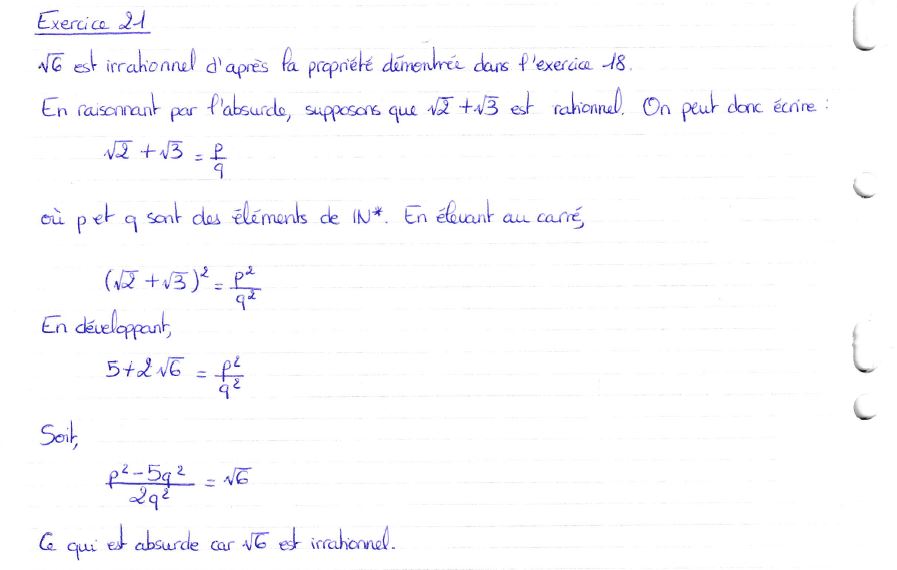 Exercice 21
√6 est irrationnel d'après la propriété démontrée dans l'exercice 18.
En raisonnant par l'absurde, supposons que √2 + √3 est rationnel. On peut donc écrire :
√2 + √3 = p/q
où p et q sont des éléments de IN*. En élevant au carré,
(√2 + √3)² = p²/q²
En développant,
5 + 2√6 = p²/q²
Soit,
(p² - 5q²)/2q² = √6
Ce qui est absurde car √6 est irrationnel.